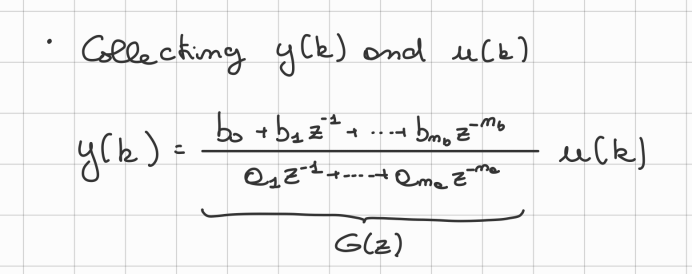 · Collecting y(k) and u(k)
y(k) = \frac{b_0 + b_1 z^{-1} + \cdots + b_{n_b} z^{-n_b}}{a_1 z^{-1} + \cdots + a_{n_a} z^{-n_a}} u(k)
G(z)